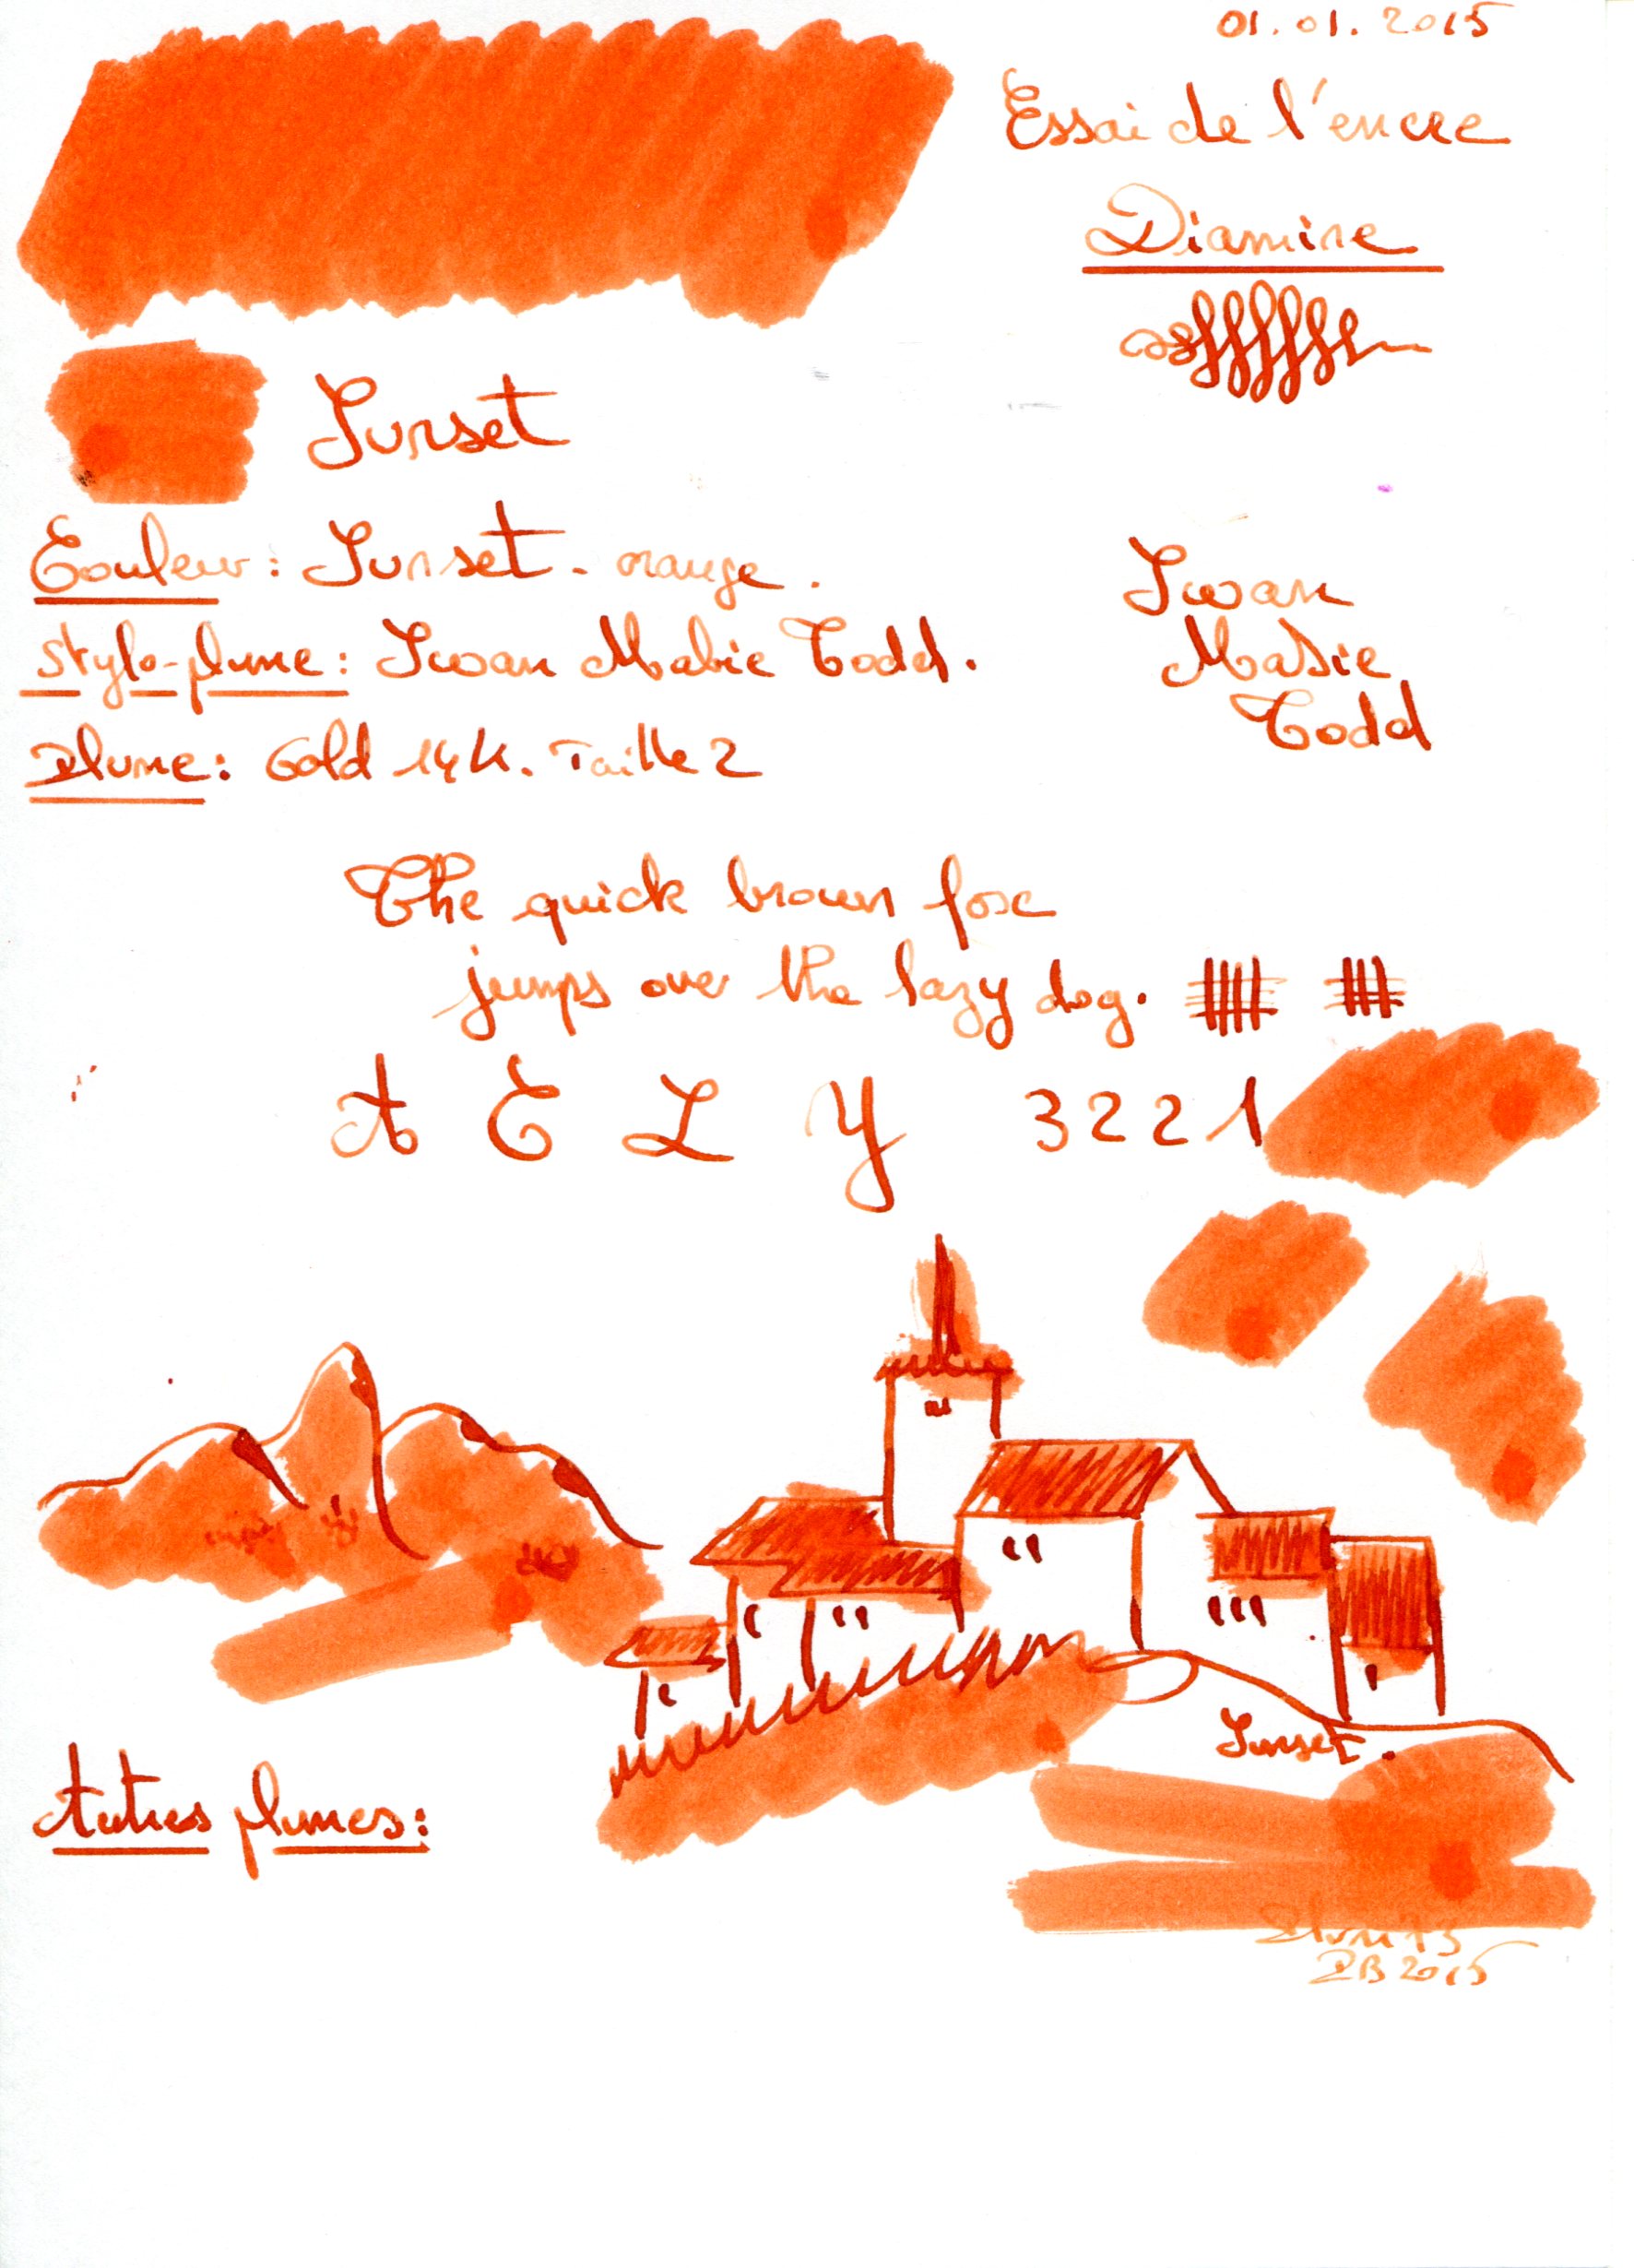 01.01.2015
Essai de l'encre
Diamine
Sunset
Couleur: Sunset - orange.
Stylo-plume: Swan Mabie Todd.
Swan
Mabie
Todd
Plume: Gold 14K. Taille 2
The quick brown fox
jumps over the lazy dog.
A E L Y 3221
Sunset.
Autres plumes:
PB 2015